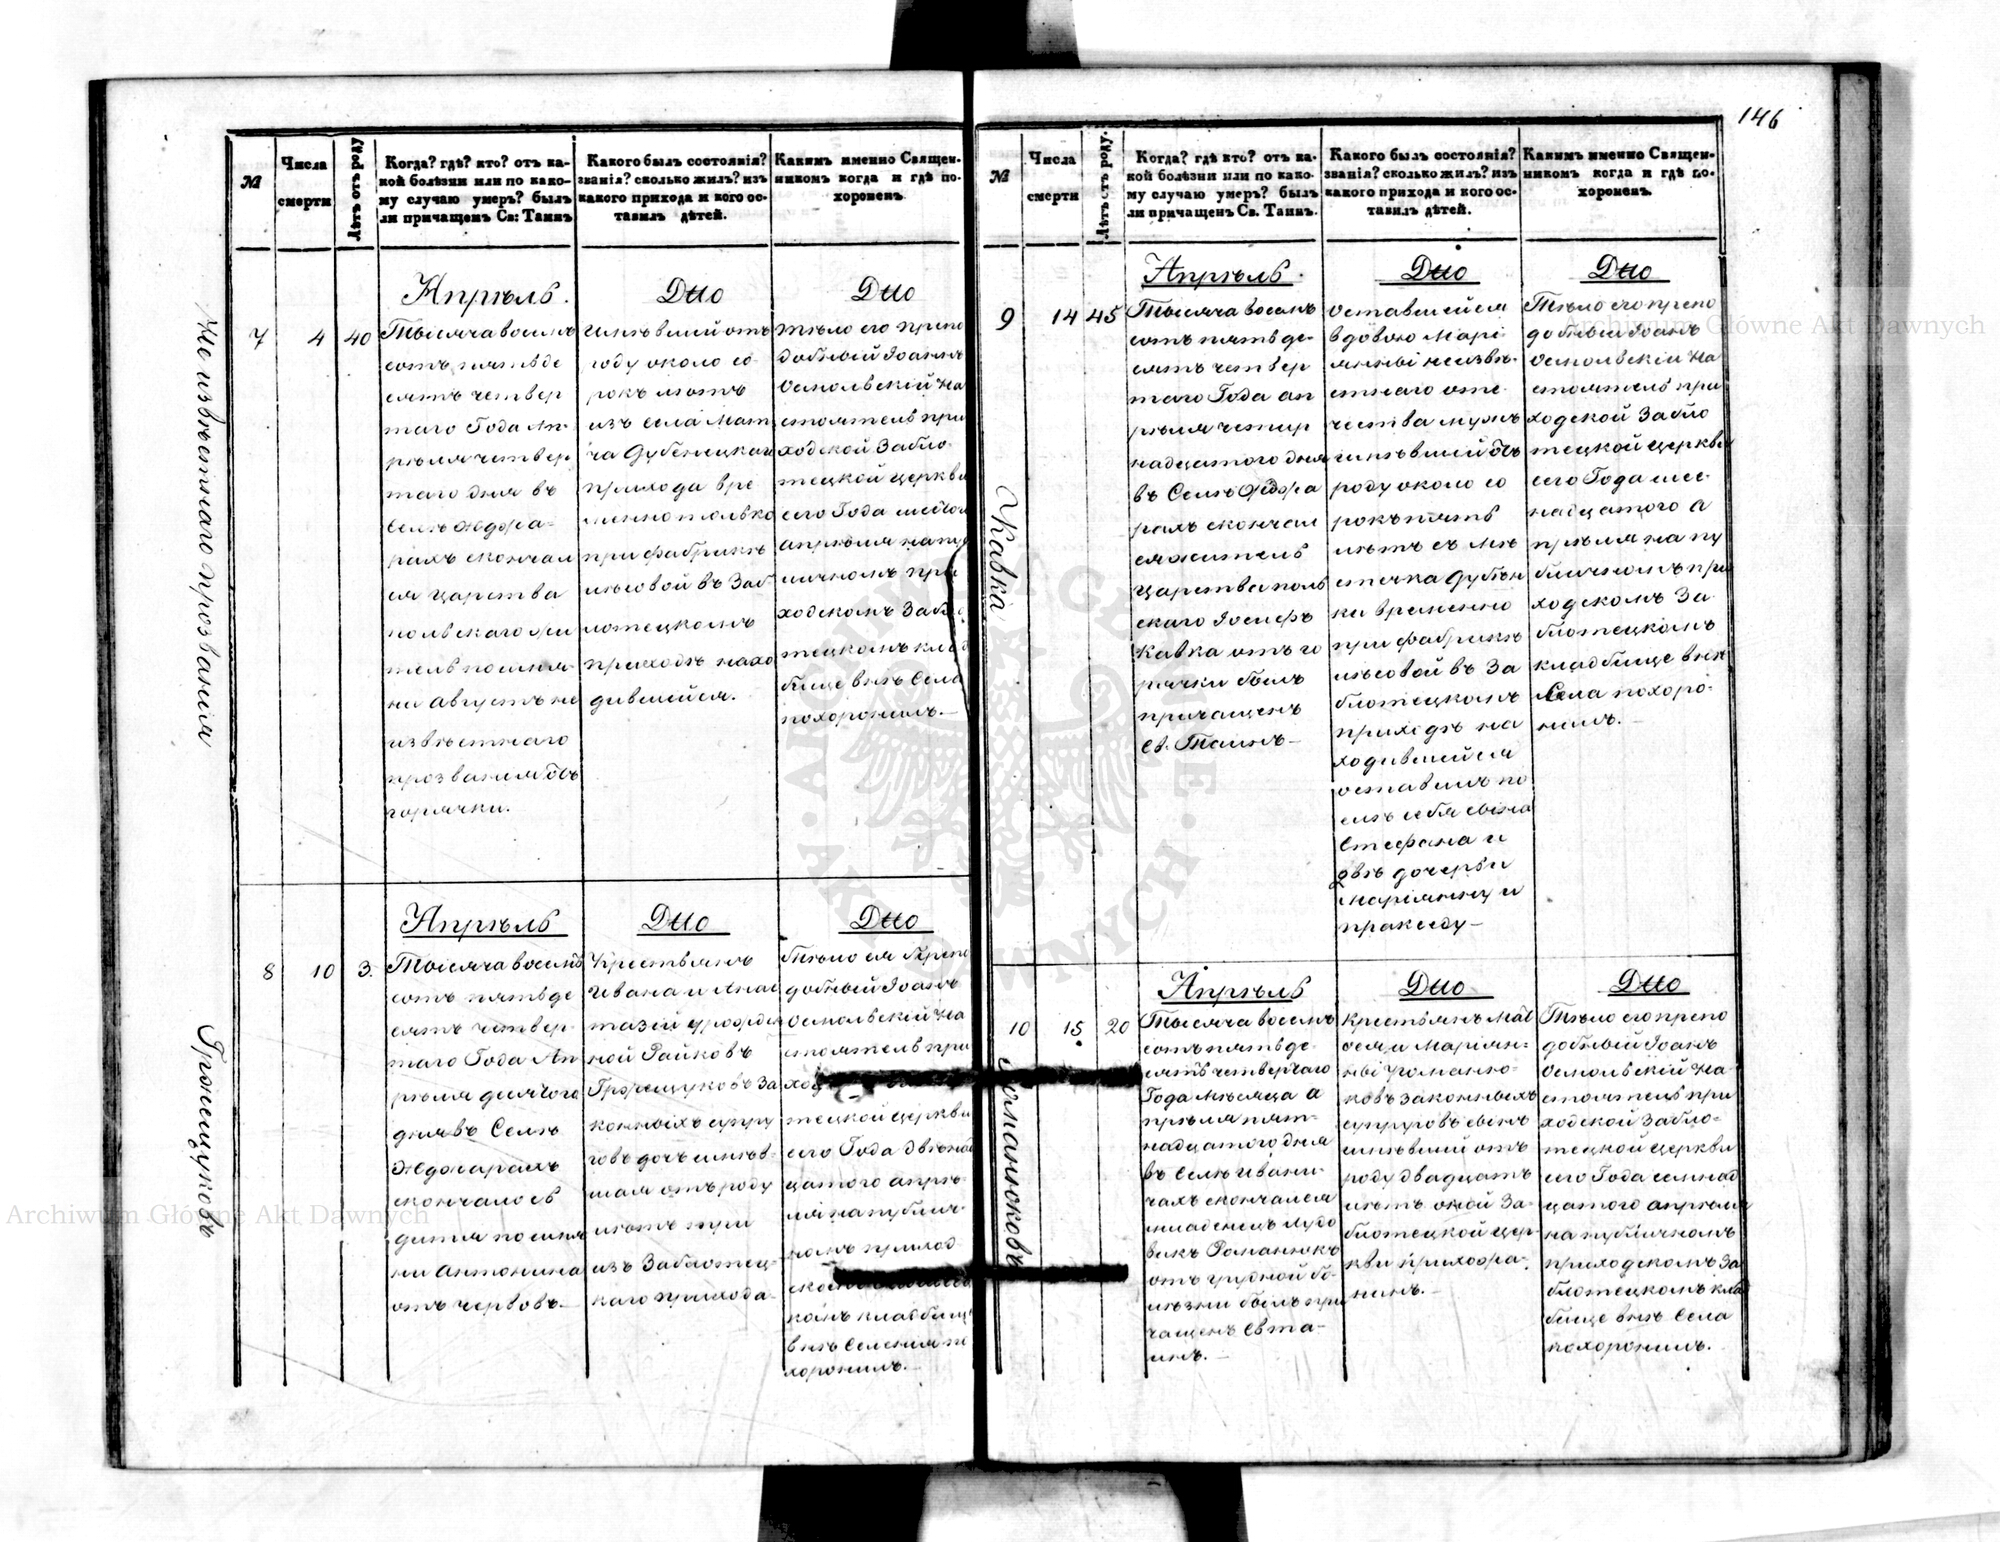 146
№
Числа
смерти
Лѣтъ отъ роду
Когда? гдѣ? кто? отъ ка-
кой болѣзни или по како-
му случаю умеръ? былъ
ли причащенъ Св: Таинъ
Какого былъ состоянія?
званія? сколько жилъ? изъ
какого прихода и кого ос-
тавилъ дѣтей.
Какимъ именно Священ-
никомъ когда и гдѣ по-
хороненъ.
Не извѣстнаго прозванія
7
4
40
Апрѣль.
Тысяча восемь
сотъ пятьде
сятъ четвер
таго Года Ап-
рѣля четвер
таго дня въ
Селѣ Жджа-
рахъ скончал
ся царства
польскаго жи
тель по имя-
ни Августъ не
извѣстнаго
прозванія отъ
горячки.
Дтто
имѣвшій отъ
роду около со
рокъ лѣтъ
изъ села Мат
ча Дубенецкаго
прихода вре
менно только
при фабрикѣ
лѣсовой въ Заб
лотецкомъ
приходѣ нахо
дившійся.
Дтто
тѣло его препо
добный Іоаннъ
Осмольскій На
стоятель при
ходской Забло-
тецкой церкви
сего Года шестого
апрѣля на пуб
личномъ при
ходскомъ Забло
тецкомъ клад
бище внѣ Села
похоронилъ.—
Грожещуковъ
8
10
3.
Апрѣль
Тысяча восемь
сотъ пятьде
сятъ четвер-
таго Года Ап
рѣля десятого
дня въ Селѣ
Ждожарахъ
скончалось
дитя по имя
ни Антонина
отъ червовъ.—
Дтто
Крестьянъ
Ивана и Анас
тазіи урожден
ной Райковъ
Грожещуковъ за
конныхъ супру
говъ дочь имѣв-
шая отъ роду
лѣтъ три
изъ Заблотец-
каго прихода-
Дтто
Тѣло ея Препо
добный Іоаннъ
Осмольскій На
стоятель при
тецкой церкви
сего Года двѣнад
цатого апрѣ-
ля на публич-
номъ приход-
комъ кладбище
внѣ Селенія по
хоронилъ.—
№
Числа
смерти
Лѣтъ отъ роду.
Когда? гдѣ кто? отъ ка-
кой болѣзни или по како-
му случаю умеръ? былъ
ли причащенъ Св. Таинъ.
Какого былъ состоянія?
званія? сколько жилъ? изъ
какого прихода и кого ос-
тавилъ дѣтей.
Какимъ именно Священ-
никомъ когда и гдѣ по-
хороненъ.
Кавка
9
14
45
Апрѣль.
Тысяча восемь
сотъ пятьде-
сятъ четвер
таго Года ап
рѣля четыр
надцатого дня
въ Селѣ Ждзжа
рахъ скончал
ся житель
Царства поль
скаго Іосифъ
Кавка отъ го
рячки былъ
причащенъ
Св. Таинъ—
Дтто
оставшейся
вдовою Марі
янны неизвѣ-
стнаго оте-
чества мужъ
имѣвшій отъ
роду около со
рокъ пять
лѣтъ съ мѣ
стечка Дубѣн
ки временно
при фабрикѣ
лѣсовой въ За
блотецкомъ
приходѣ на
ходившійся
оставилъ по
слѣ себя сына
Стефана и
двѣ дочерьи
Маріянну и
праксиду—
Дтто
Тѣло его препо
добный Іоаннъ
Осмольскій На
стоятель при
ходской Забло
тецкой церкви
сего Года шес-
надцатого а
прѣля на пу
бличномъ при
ходскомъ За-
блотецкомъ
кладбище внѣ
Села похоро-
нилъ.—
Романюковъ
10
15
20
Апрѣль
Тысяча восемь
сотъ пятьде-
сятъ четвертаго
Года мѣсяца а
прѣля пят-
надцатого дня
въ Селѣ Ивани-
чахъ скончался
младенецъ Лудо
викъ Романюкъ
отъ грудной бо-
лѣзни былъ при
чащенъ Св Та-
инъ.—
Дтто
Крестьянъ Мат
фея и Маріян-
ны Романю-
ковъ законныхъ
супруговъ сынъ
имѣвшій отъ
роду двадцать
лѣтъ оной За-
блотецкой цер-
кви прихожа-
нинъ.—
Дтто
Тѣло его препо
добный Іоаннъ
Осмольскій На-
стоятель при
ходской Забло-
тецкой церкви
сего Года семнад
цатого апрѣля
на публичномъ
приходскомъ За
блотецкомъ клад
бище внѣ Села
похоронилъ.
Archiwum Główne Akt Dawnych
Archiwum Główne Akt Dawnych